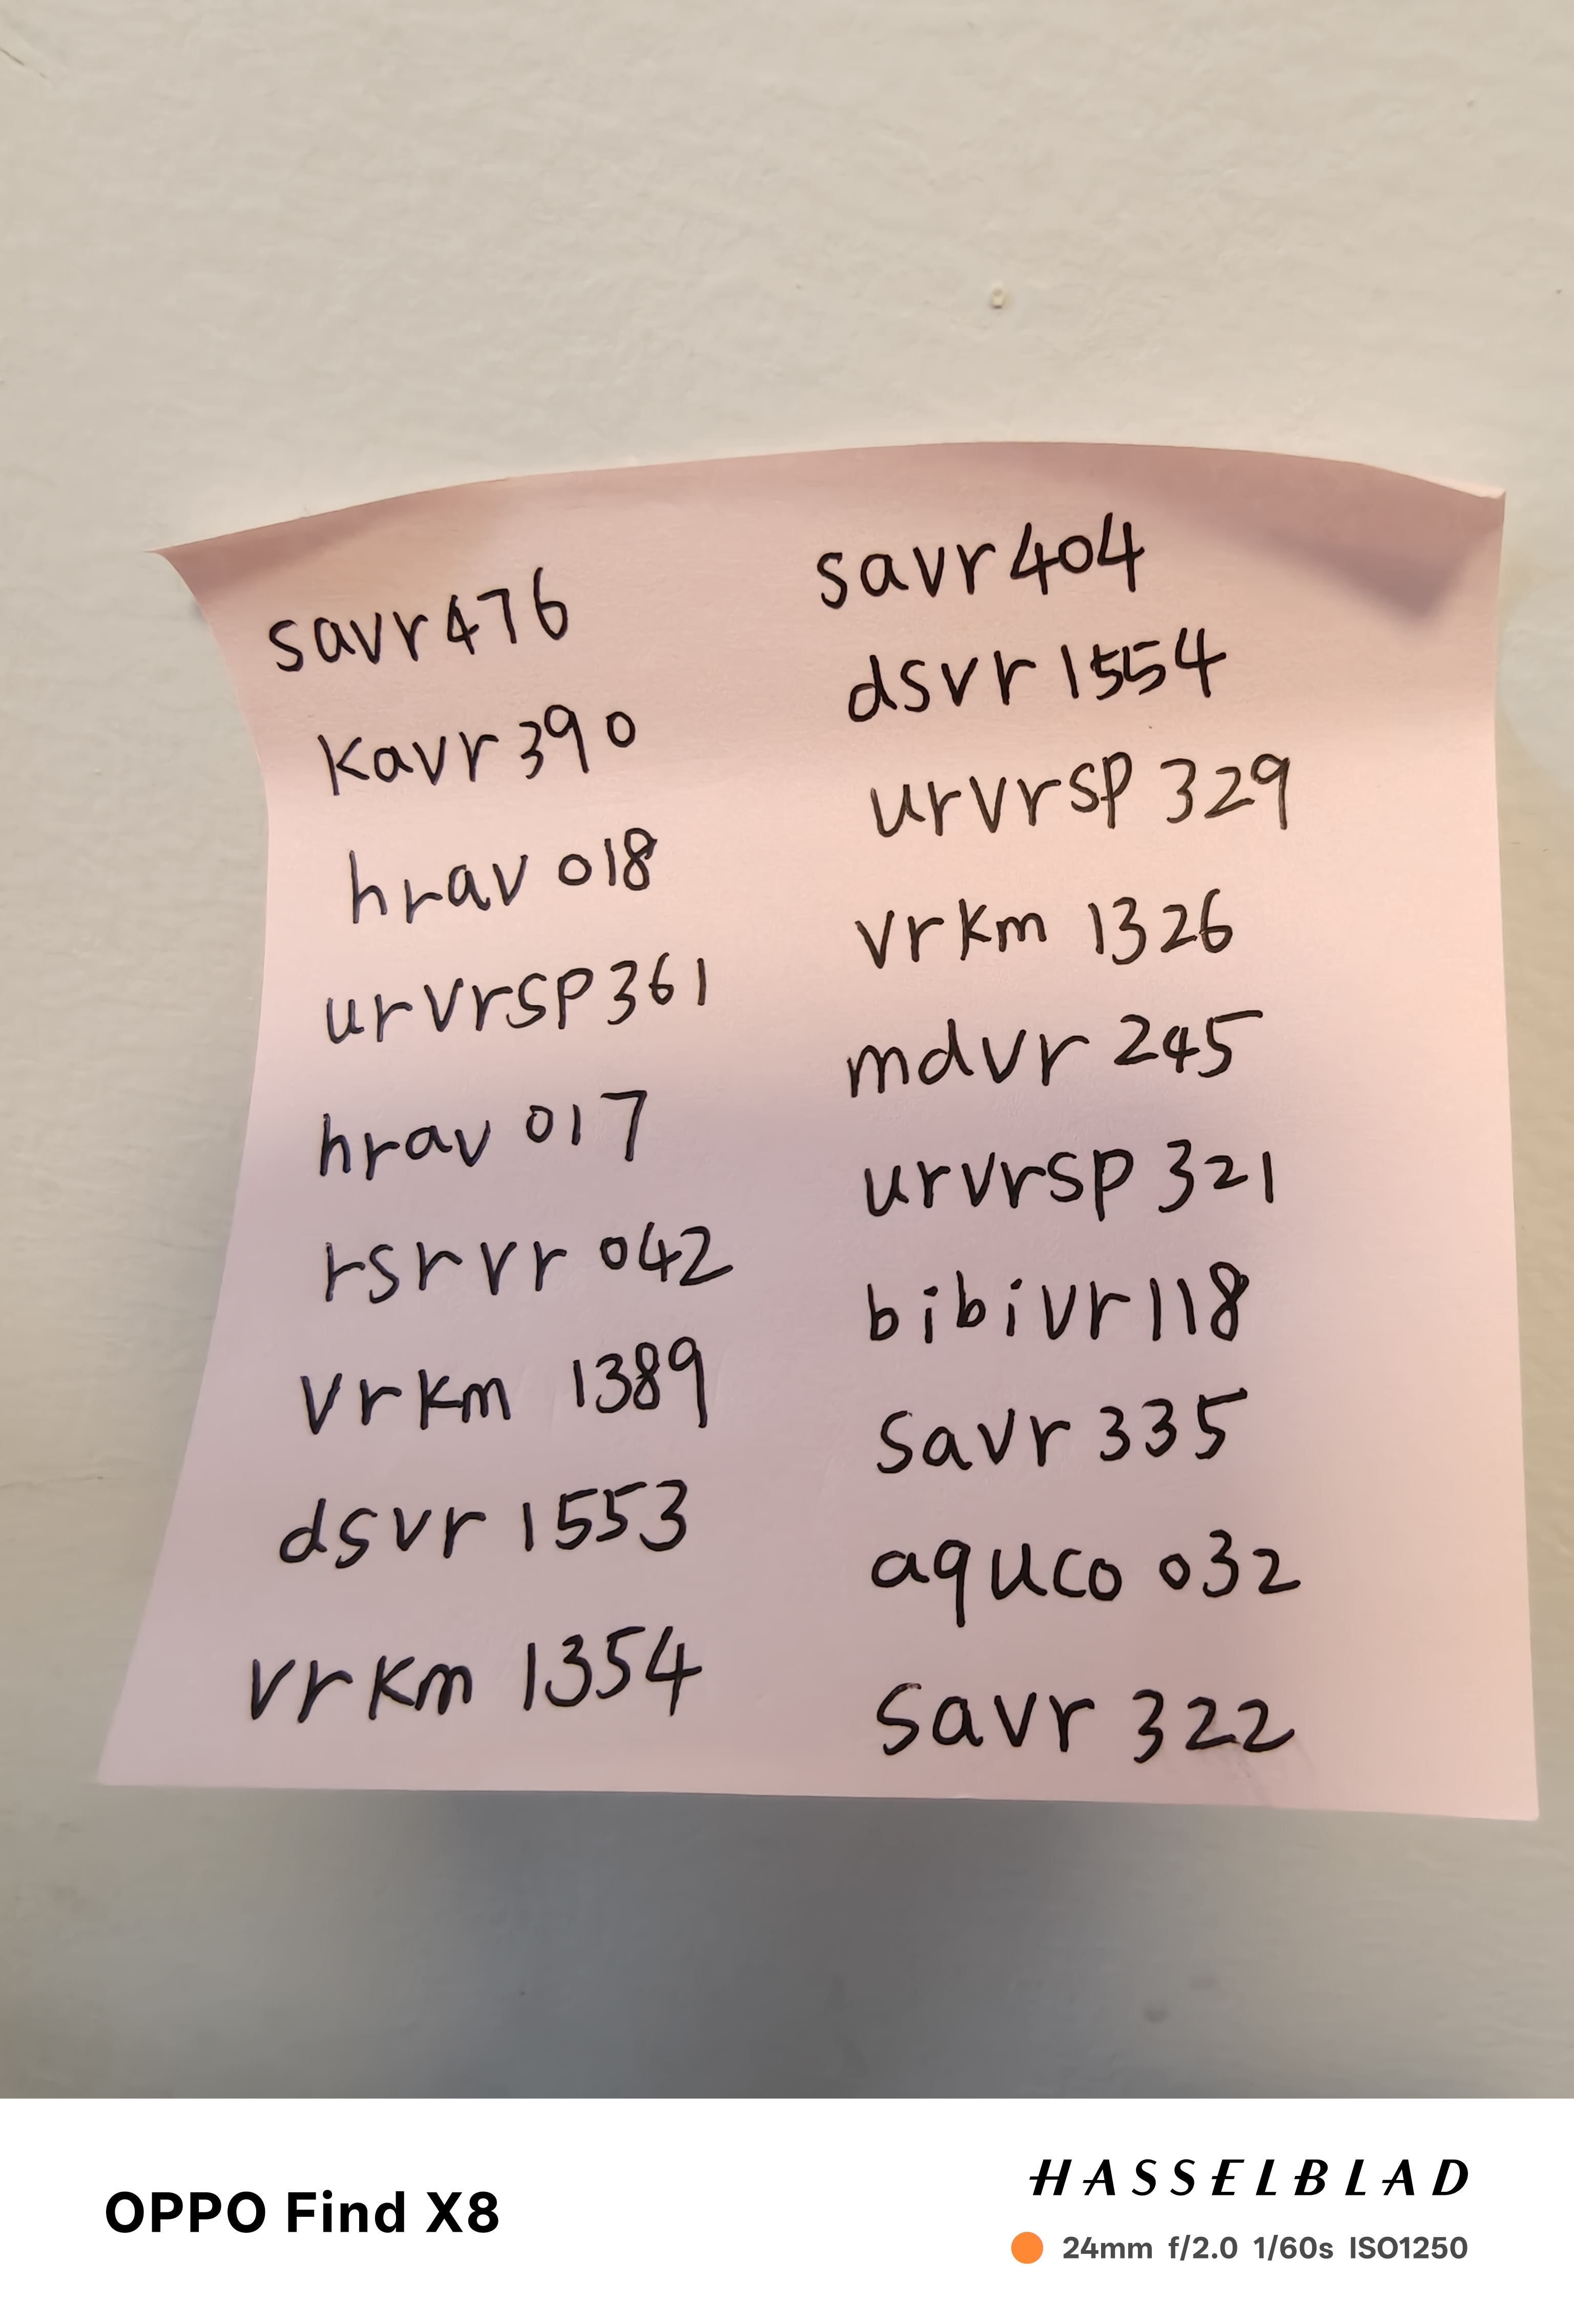 savr476
kavr390
hrav018
urvrsp361
hrav 017
rsrvr 042
vrkm 1389
dsvr 1553
vrkm 1354
savr404
dsvr 1554
urvrsp 329
vrkm 1326
mdvr 245
urvrsp 321
bibivr118
savr 335
aquco 032
savr 322
OPPO Find X8
HASSELBLAD
24mm f/2.0 1/60s ISO1250